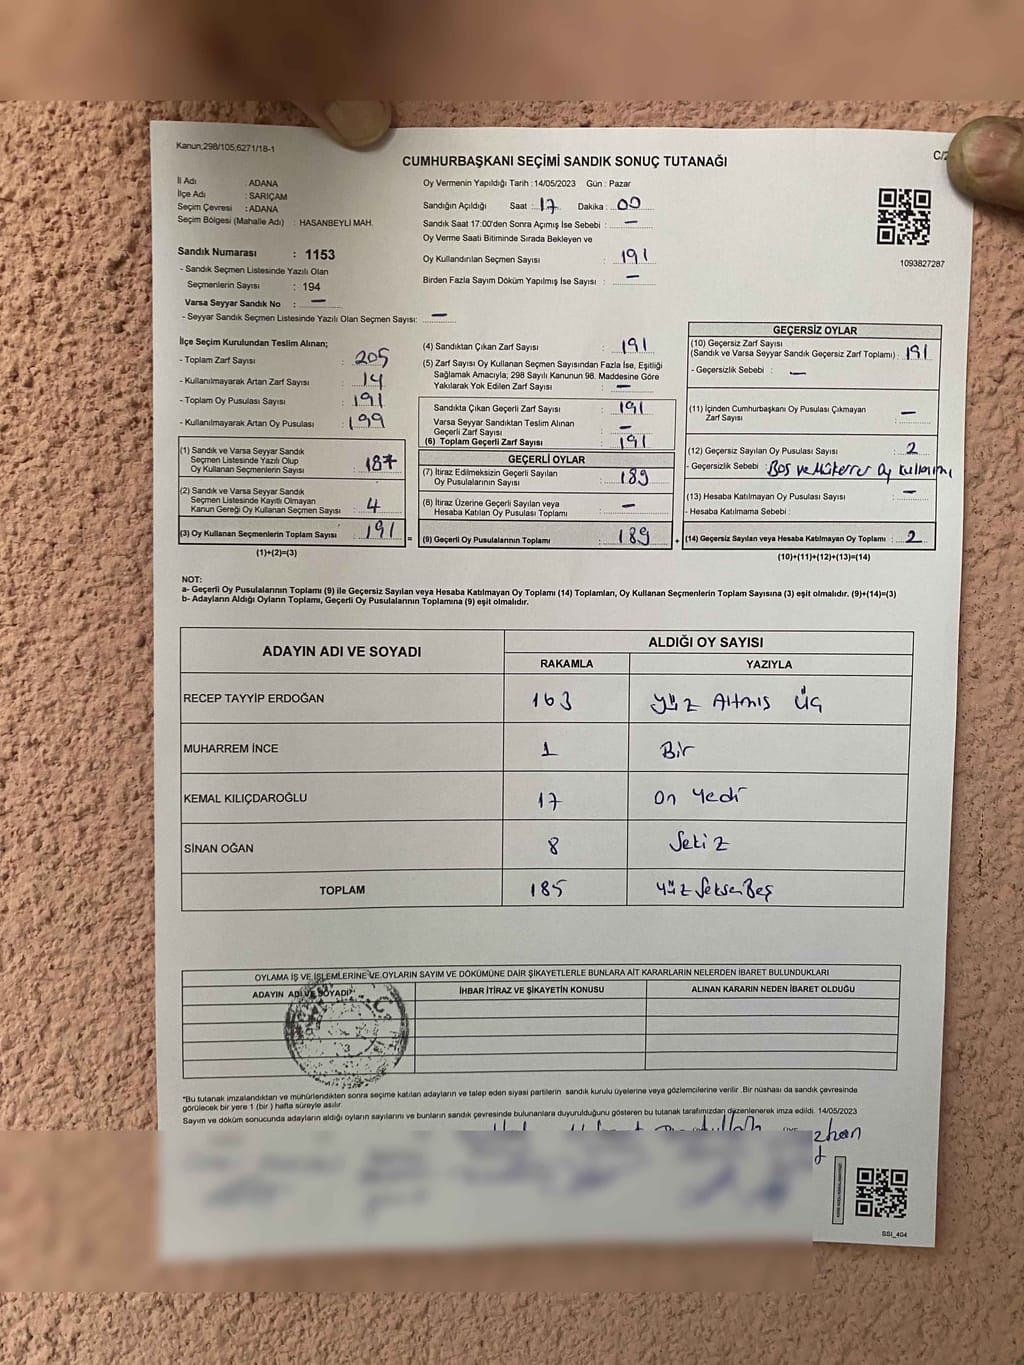 Kanun;298/105;6271/18-1
CUMHURBAŞKANI SEÇİMİ SANDIK SONUÇ TUTANAĞI
C/2
İl Adı : ADANA
İlçe Adı : SARIÇAM
Seçim Çevresi : ADANA
Seçim Bölgesi (Mahalle Adı) : HASANBEYLİ MAH.
Sandık Numarası : 1153
- Sandık Seçmen Listesinde Yazılı Olan
Seçmenlerin Sayısı : 194
Varsa Seyyar Sandık No : —
- Seyyar Sandık Seçmen Listesinde Yazılı Olan Seçmen Sayısı: —
Oy Vermenin Yapıldığı Tarih :14/05/2023 Gün : Pazar
Sandığın Açıldığı Saat : 17 Dakika : 00
Sandık Saat 17:00'den Sonra Açımış İse Sebebi : —
Oy Verme Saati Bitiminde Sırada Bekleyen ve
Oy Kullandırılan Seçmen Sayısı : 191
Birden Fazla Sayım Döküm Yapılmış İse Sayısı : —
1093827287
İlçe Seçim Kurulundan Teslim Alınan;
- Toplam Zarf Sayısı : 205
- Kullanılmayarak Artan Zarf Sayısı : 14
- Toplam Oy Pusulası Sayısı : 191
- Kullanılmayarak Artan Oy Pusulası : 199
(1) Sandık ve Varsa Seyyar Sandık
Seçmen Listesinde Yazılı Olup
Oy Kullanan Seçmenlerin Sayısı : 187
(2) Sandık ve Varsa Seyyar Sandık
Seçmen Listesinde Kayıtlı Olmayan
Kanun Gereği Oy Kullanan Seçmen Sayısı : 4
(3) Oy Kullanan Seçmenlerin Toplam Sayısı : 191 =
(1)+(2)=(3)
(4) Sandıktan Çıkan Zarf Sayısı : 191
(5) Zarf Sayısı Oy Kullanan Seçmen Sayısından Fazla İse, Eşitliği
Sağlamak Amacıyla; 298 Sayılı Kanunun 98. Maddesine Göre
Yakılarak Yok Edilen Zarf Sayısı : —
Sandıkta Çıkan Geçerli Zarf Sayısı : 191
Varsa Seyyar Sandıktan Teslim Alınan
Geçerli Zarf Sayısı : —
(6) Toplam Geçerli Zarf Sayısı : 191
GEÇERLİ OYLAR
(7) İtiraz Edilmeksizin Geçerli Sayılan
Oy Pusulalarının Sayısı : 189
(8) İtiraz Üzerine Geçerli Sayılan veya
Hesaba Katılan Oy Pusulası Toplamı : —
(9) Geçerli Oy Pusulalarının Toplamı : 189 +
GEÇERSİZ OYLAR
(10) Geçersiz Zarf Sayısı
(Sandık ve Varsa Seyyar Sandık Geçersiz Zarf Toplamı) : 191
- Geçersizlik Sebebi : —
(11) İçinden Cumhurbaşkanı Oy Pusulası Çıkmayan
Zarf Sayısı : —
(12) Geçersiz Sayılan Oy Pusulası Sayısı : 2
- Geçersizlik Sebebi : Boş ve Mükerrer oy kullanımı
(13) Hesaba Katılmayan Oy Pusulası Sayısı : —
- Hesaba Katılmama Sebebi :
(14) Geçersiz Sayılan veya Hesaba Katılmayan Oy Toplamı : 2
(10)+(11)+(12)+(13)=(14)
NOT:
a- Geçerli Oy Pusulalarının Toplamı (9) ile Geçersiz Sayılan veya Hesaba Katılmayan Oy Toplamı (14) Toplamları, Oy Kullanan Seçmenlerin Toplam Sayısına (3) eşit olmalıdır. (9)+(14)=(3)
b- Adayların Aldığı Oyların Toplamı, Geçerli Oy Pusulalarının Toplamına (9) eşit olmalıdır.
ADAYIN ADI VE SOYADI ALDIĞI OY SAYISI
RAKAMLA YAZIYLA
RECEP TAYYİP ERDOĞAN 163 yüz Altmış üç
MUHARREM İNCE 1 Bir
KEMAL KILIÇDAROĞLU 17 on yedi
SİNAN OĞAN 8 Sekiz
TOPLAM 185 yüz Seksen Beş
OYLAMA İŞ VE İŞLEMLERİNE VE OYLARIN SAYIM VE DÖKÜMÜNE DAİR ŞİKAYETLERLE BUNLARA AİT KARARLARIN NELERDEN İBARET BULUNDUKLARI
ADAYIN ADI VE SOYADI İHBAR İTİRAZ VE ŞİKAYETİN KONUSU ALINAN KARARIN NEDEN İBARET OLDUĞU
*Bu tutanak imzalandıktan ve mühürlendikten sonra seçime katılan adayların ve talep eden siyasi partilerin sandık kurulu üyelerine veya gözlemcilerine verilir .Bir nüshası da sandık çevresinde
görülecek bir yere 1 (bir ) hafta süreyle asılır.
Sayım ve döküm sonucunda adayların aldığı oyların sayılarını ve bunların sandık çevresinde bulunanlara duyurulduğunu gösteren bu tutanak tarafımızdan düzenlenerek imza edildi. 14/05/2023
SSI_404